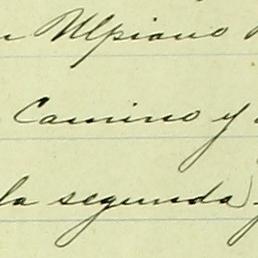 Ulpiano
Camino y
la segunda